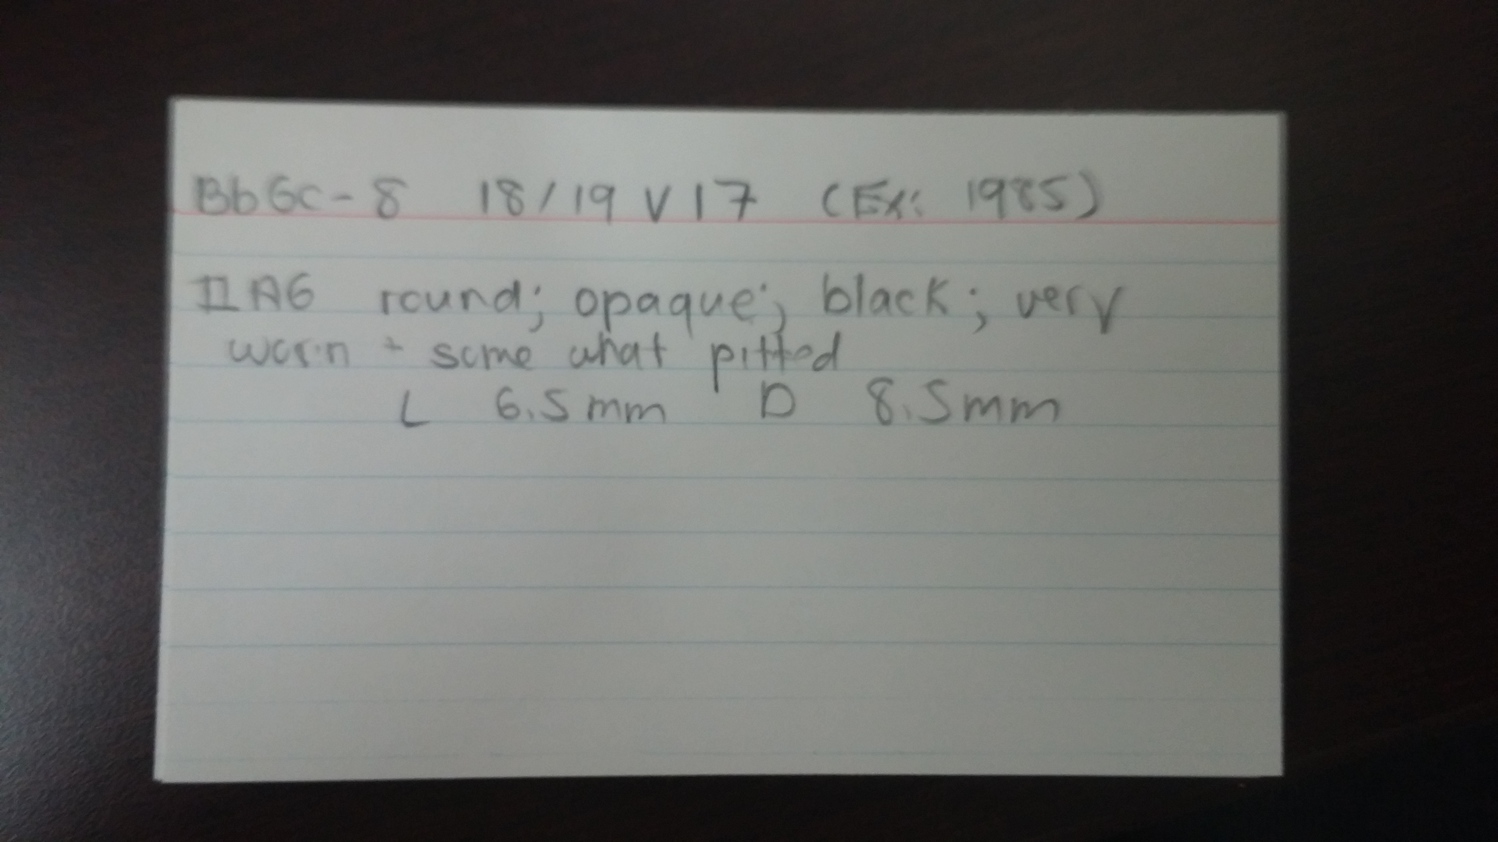 BbGc-8 18/19 V 17 (Ex: 1985)
II A6 round; opaque; black; very
worn + some what pitted
L 6.5mm D 8.5mm